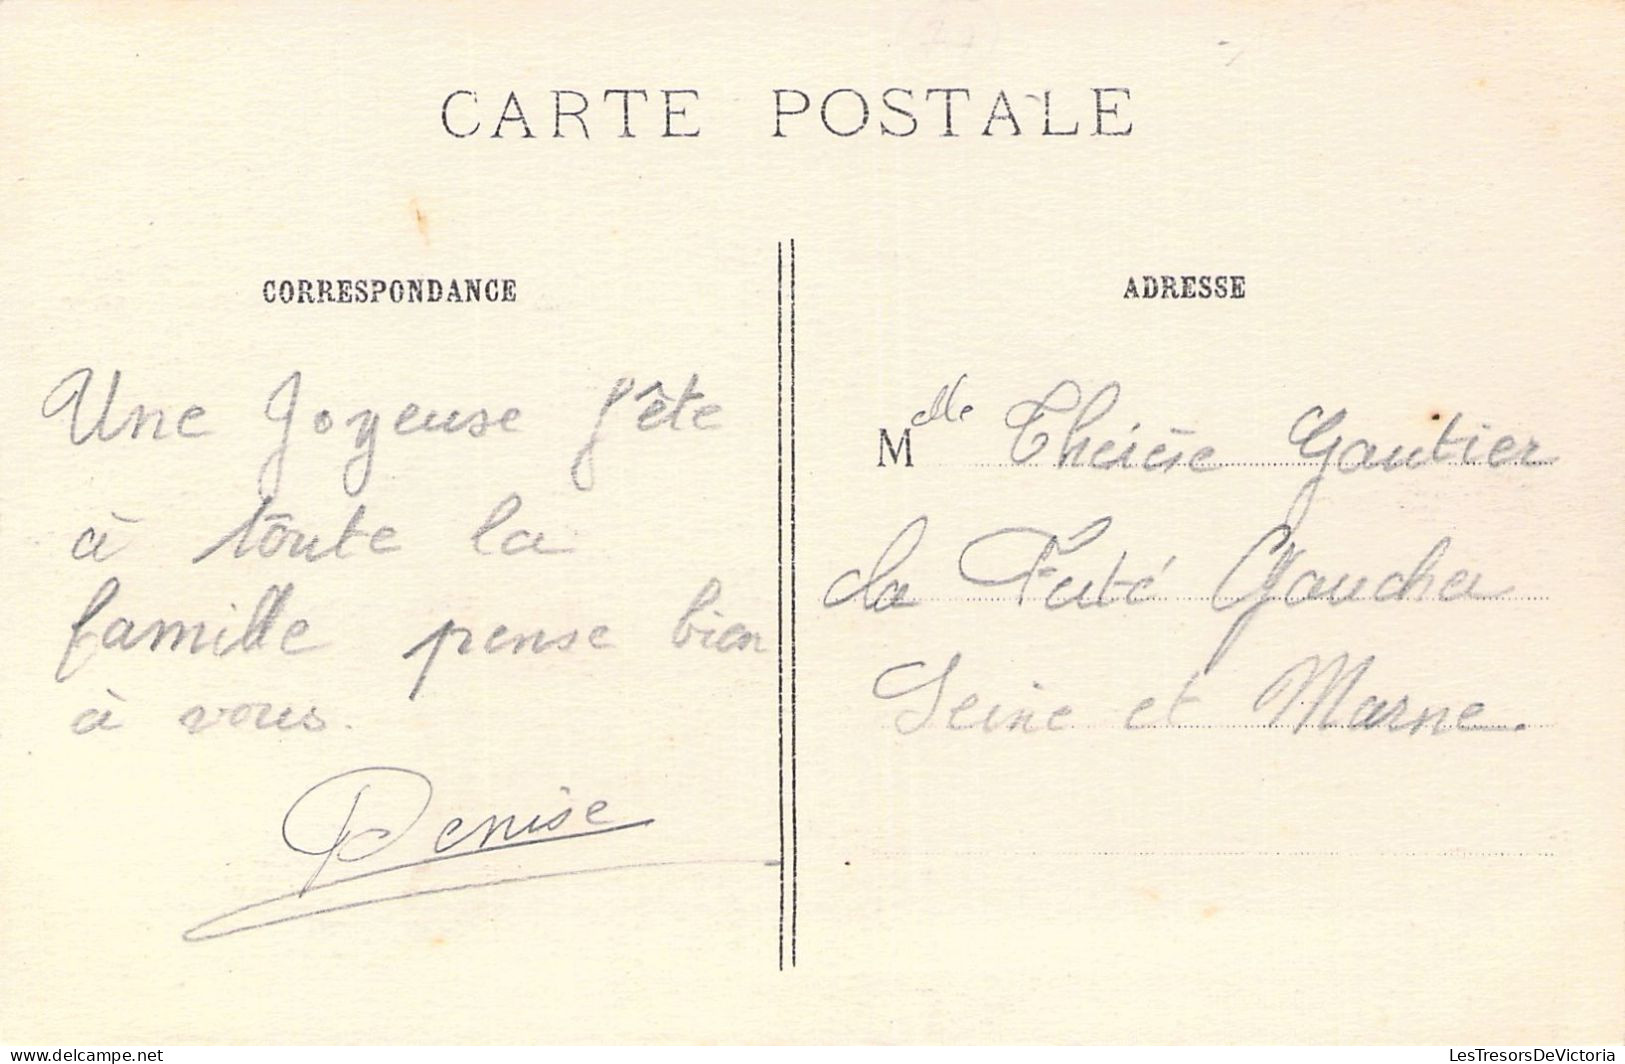 CARTE POSTALE
CORRESPONDANCE
Une Joyeuse fête
à toute la
famille pense bien
à vous.
Denise
ADRESSE
Melle Thérèse Gautier
La Ferté Gaucher
Seine et Marne.
delcampe.net
LesTresorsDeVictoria